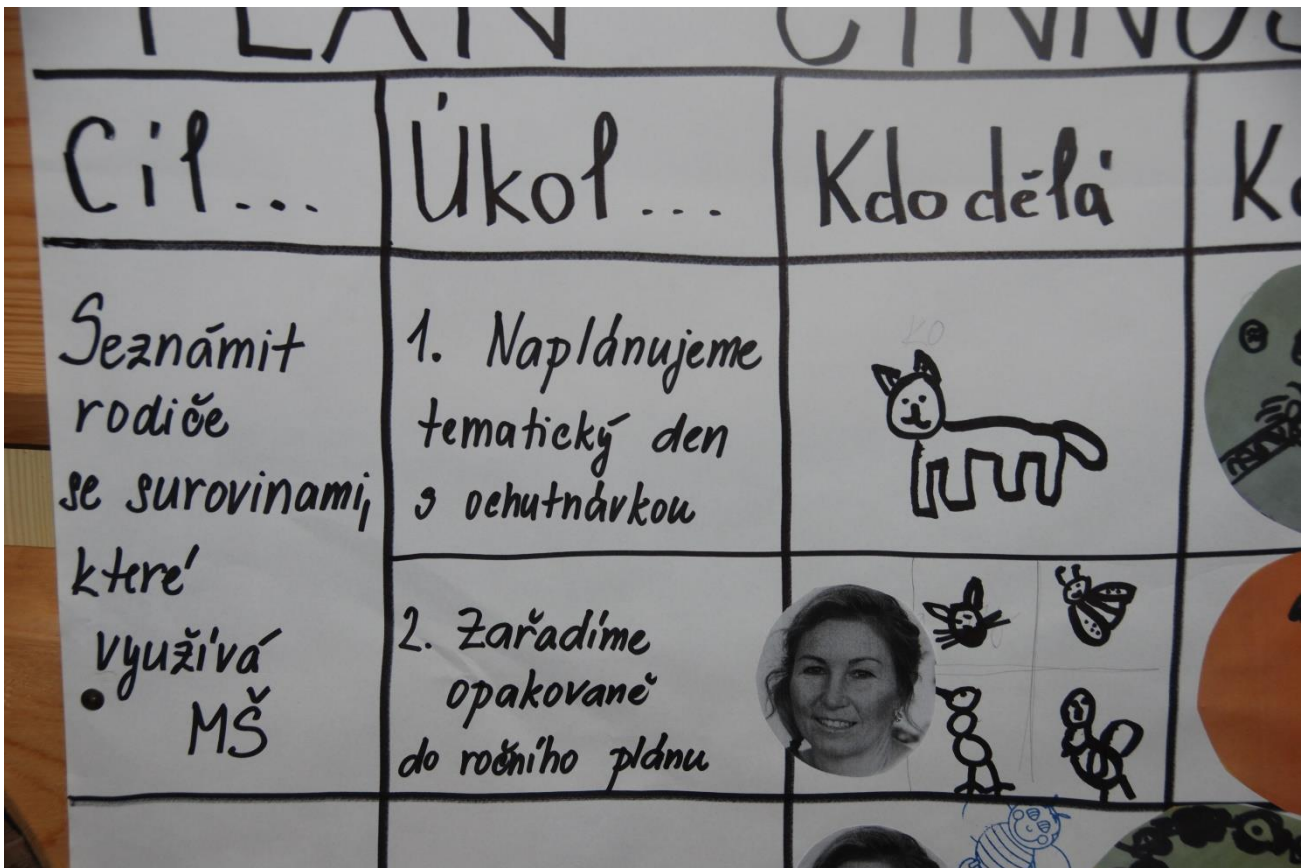 PLÁN ČINNOS
Cíl...
Úkol...
Kdo dělá
K
Seznámit
rodiče
se surovinami,
které
využívá
MŠ
1. Naplánujeme
tematický den
s ochutnávkou
2. Zařadíme
opakovaně
do ročního plánu